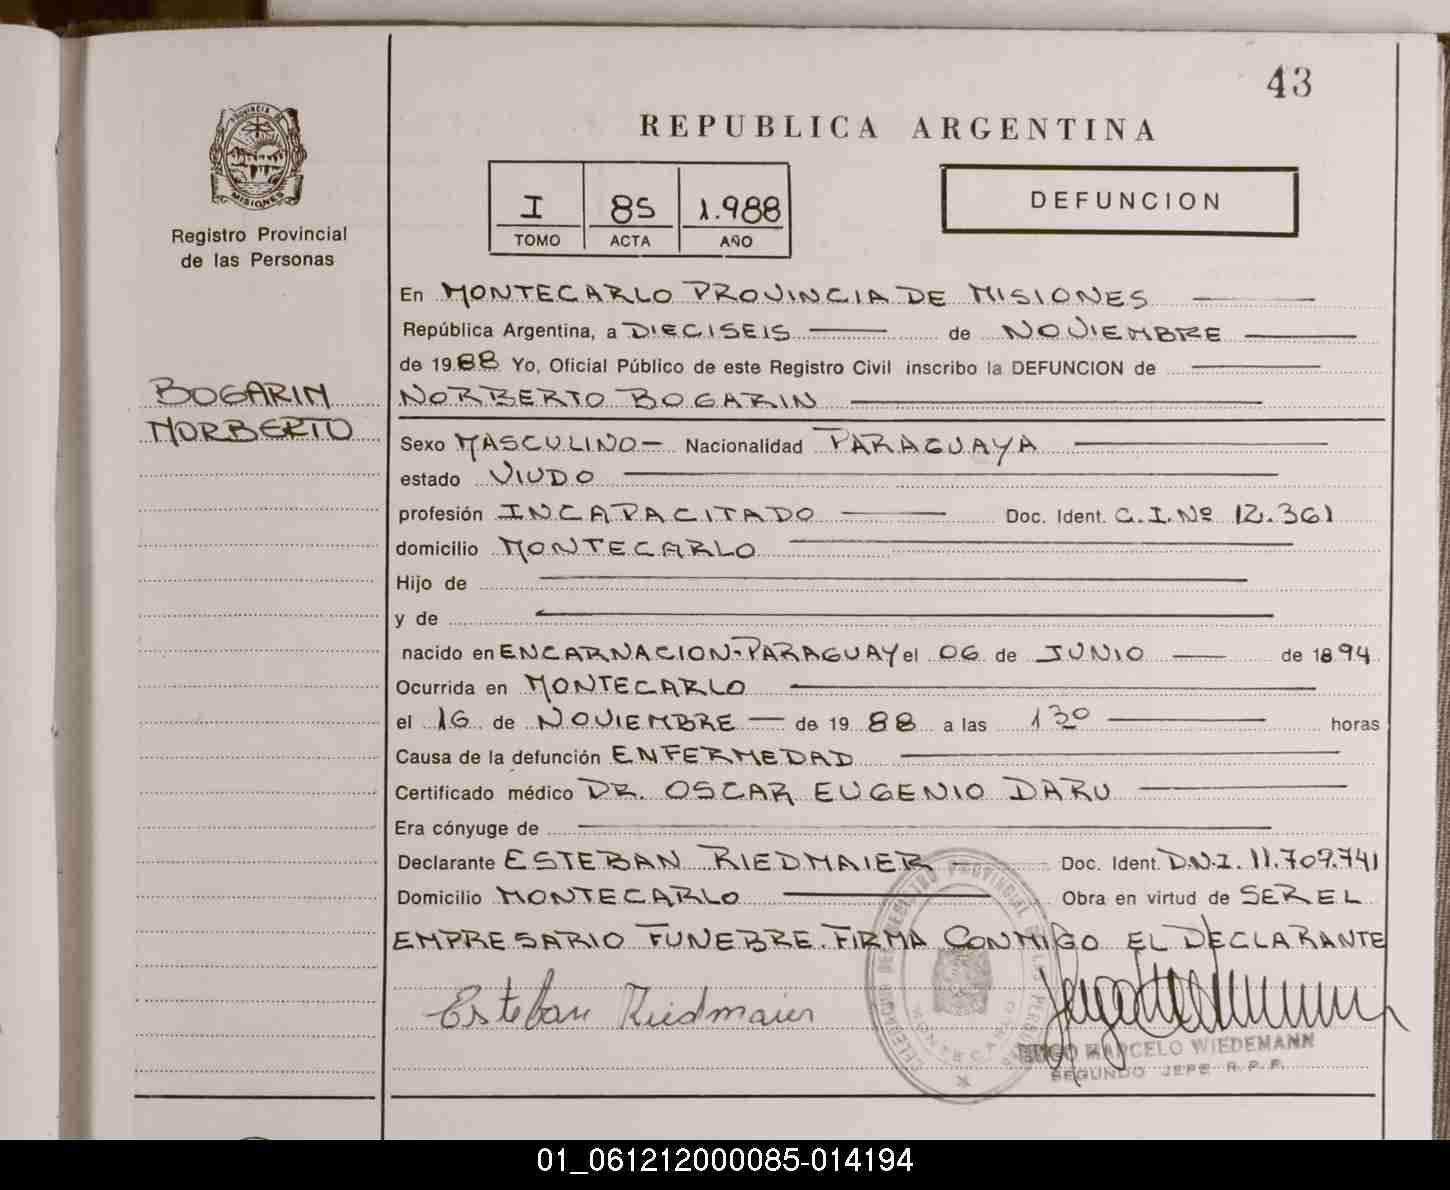 43
PROVINCIA DE
MISIONES
Registro Provincial
de las Personas
REPUBLICA ARGENTINA
I 85 1.988
TOMO ACTA AÑO
DEFUNCION
BOGARIN
NORBERTO
En MONTECARLO PROVINCIA DE MISIONES
República Argentina, a DIECISEIS de NOVIEMBRE
de 1988 Yo, Oficial Público de este Registro Civil inscribo la DEFUNCION de
NORBERTO BOGARIN
Sexo MASCULINO- Nacionalidad PARAGUAYA
estado VIUDO
profesión INCAPACITADO Doc. Ident. C.I.Nº 12.361
domicilio MONTECARLO
Hijo de
y de
nacido en ENCARNACION-PARAGUAY el 06 de JUNIO de 1894
Ocurrida en MONTECARLO
el 16 de NOVIEMBRE de 1988 a las 130 horas
Causa de la defunción ENFERMEDAD
Certificado médico DR. OSCAR EUGENIO DARU
Era cónyuge de
Declarante ESTEBAN RIEDMAIER Doc. Ident. D.N.I. 11.709.741
Domicilio MONTECARLO Obra en virtud de SER EL
EMPRESARIO FUNEBRE. FIRMA CONMIGO EL DECLARANTE
Esteban Riedmaier
DELEGACION DEL REGISTRO PROVINCIAL DE LAS PERSONAS
MONTECARLO
HUGO MARCELO WIEDEMANN
SEGUNDO JEFE R.P.P.
01_061212000085-014194